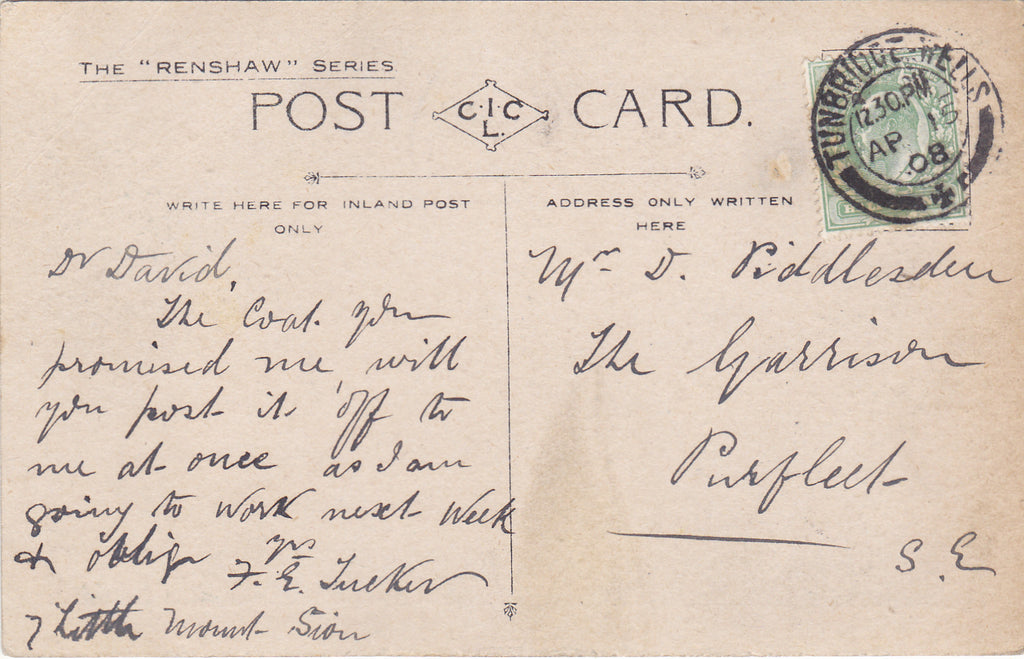 THE "RENSHAW" SERIES
POST CARD.
C.I.C
L.
TUNBRIDGE WELLS
12.30.PM
AP 15
08
WRITE HERE FOR INLAND POST
ONLY
ADDRESS ONLY WRITTEN
HERE
Dr David,
The Coat you
promised me, will
you post it off to
me at once as I am
going to work next week
& oblige yrs
F. E. Tucker
7 Little Mount Sion
Mr D. Piddlesden
The Garrison
Purfleet
S. E